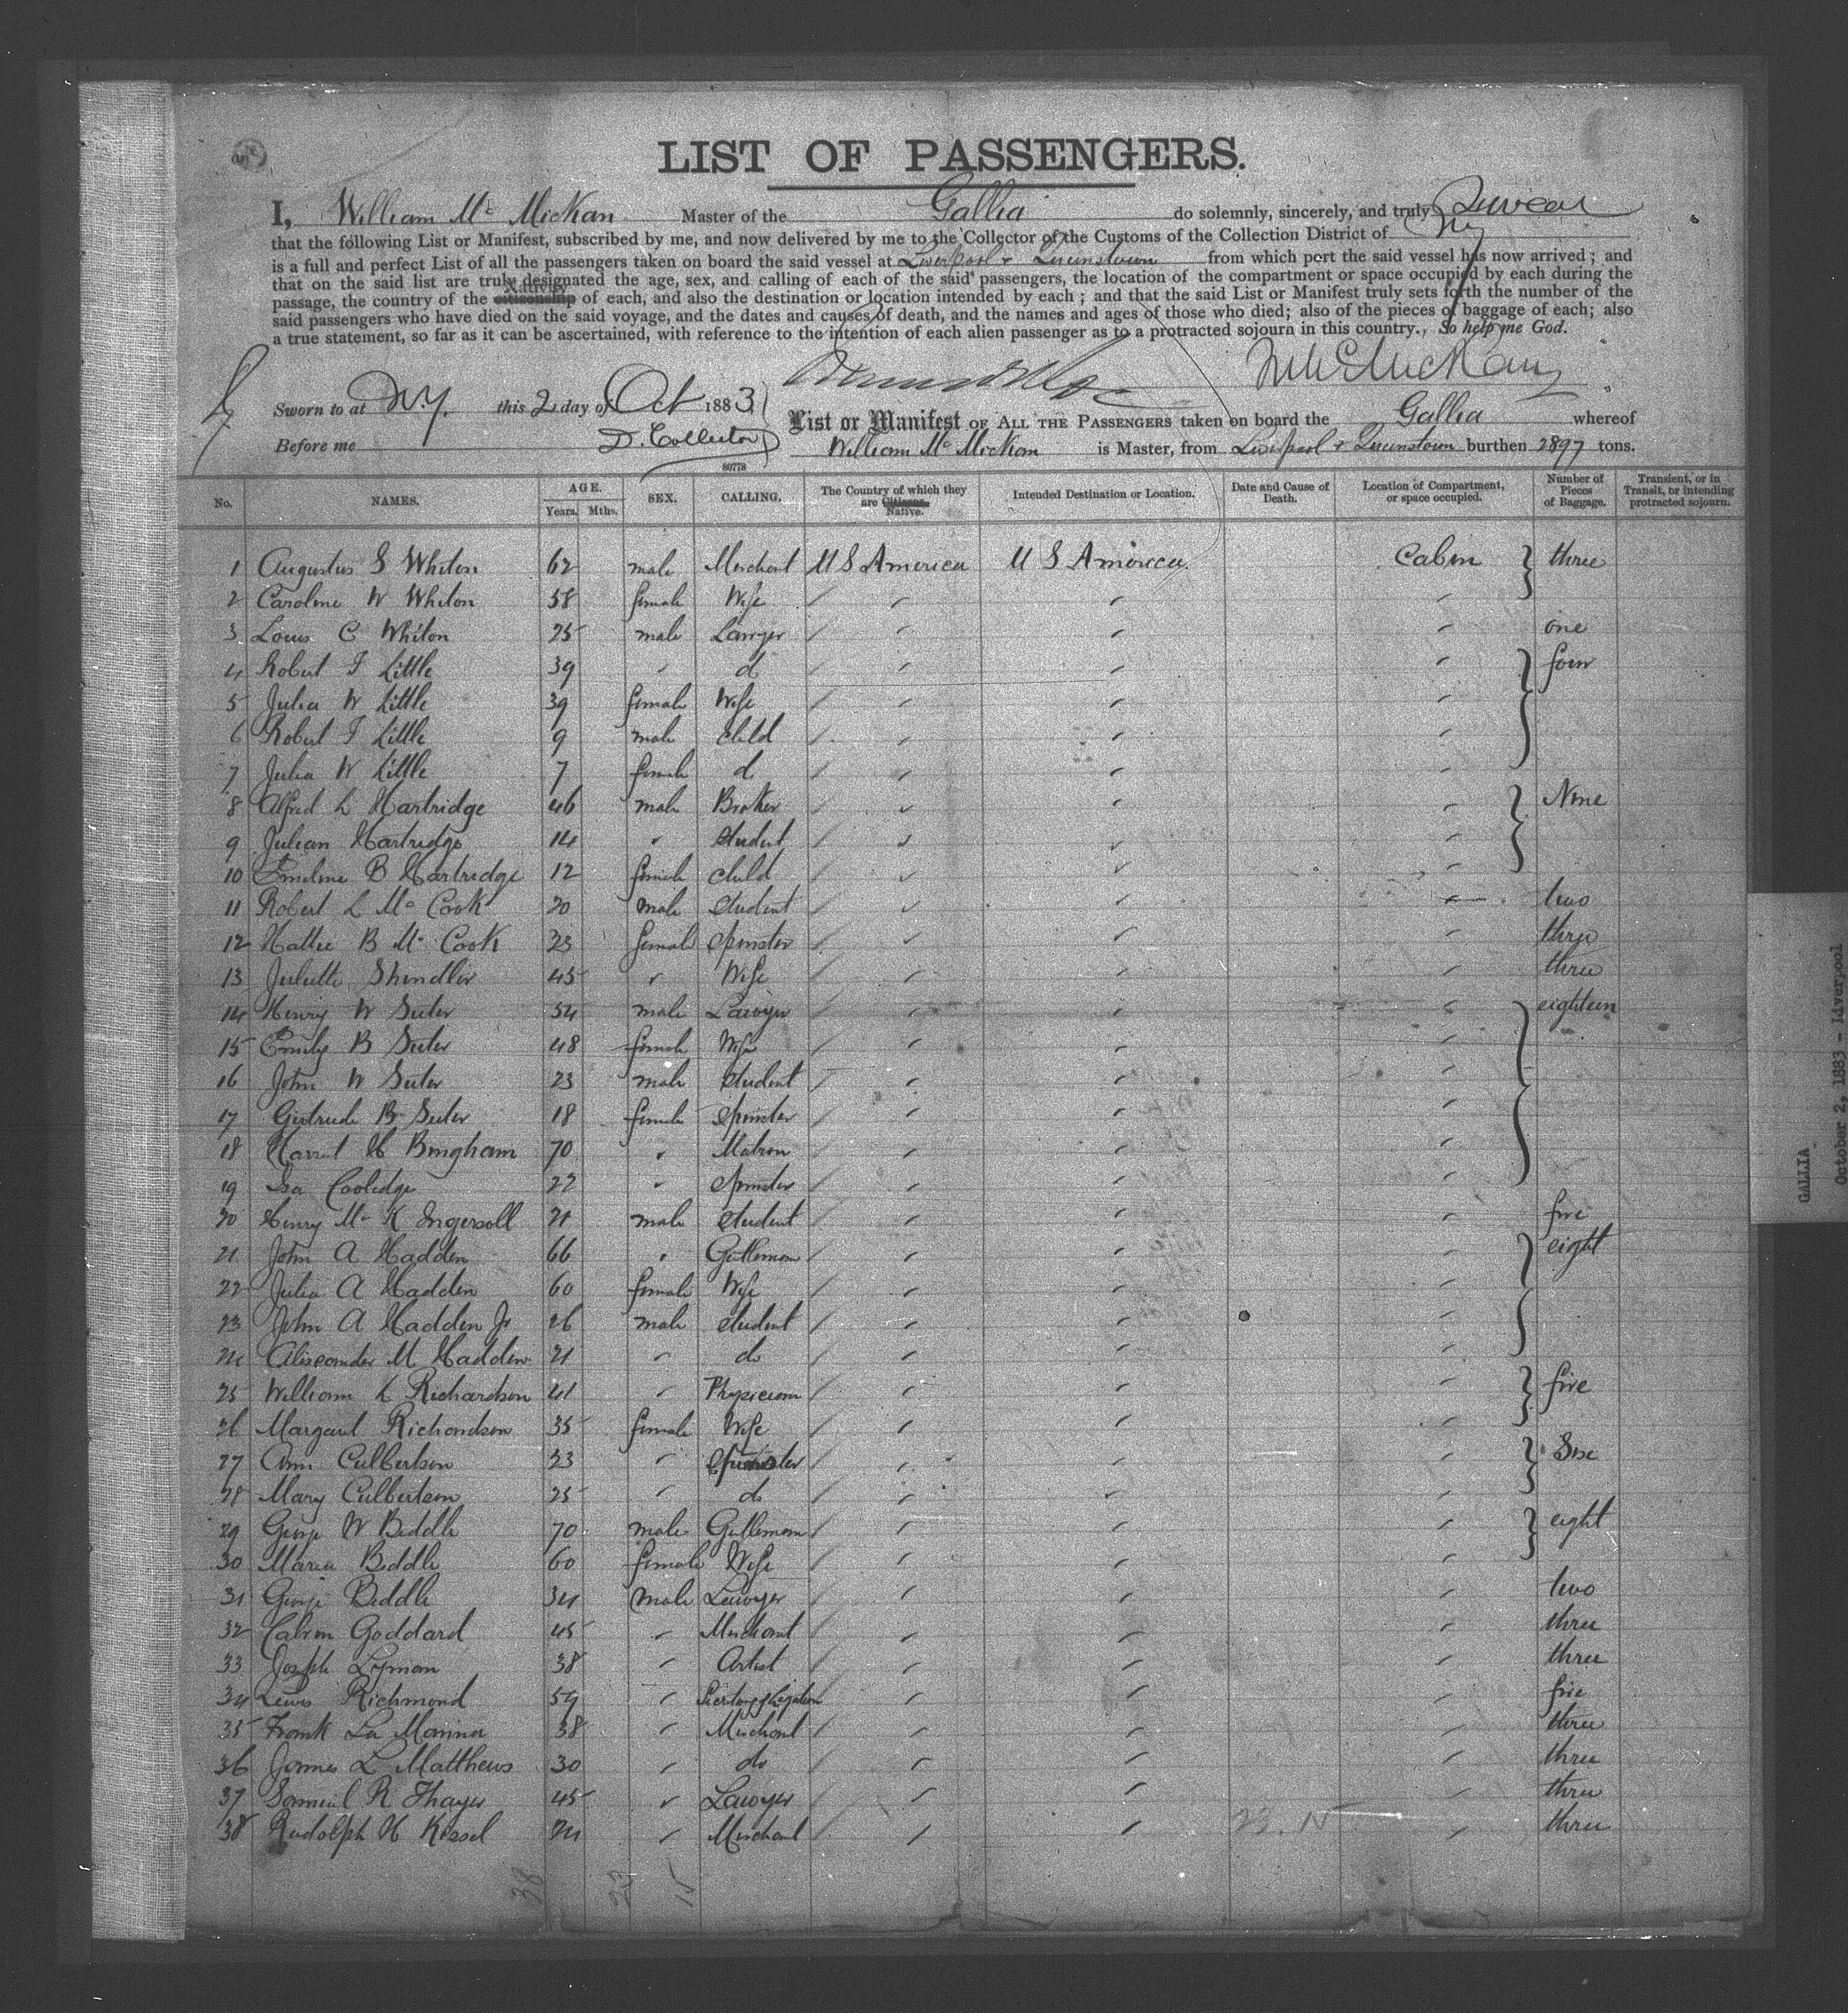 LIST OF PASSENGERS.
I, William Mc Mickan Master of the Gallia do solemnly, sincerely, and truly Swear
that the following List or Manifest, subscribed by me, and now delivered by me to the Collector of the Customs of the Collection District of NY
is a full and perfect List of all the passengers taken on board the said vessel at Liverpool & Queenstown from which port the said vessel has now arrived; and
that on the said list are truly designated the age, sex, and calling of each of the said passengers, the location of the compartment or space occupied by each during the
Nativity
passage, the country of the citizenship of each, and also the destination or location intended by each; and that the said List or Manifest truly sets forth the number of the
said passengers who have died on the said voyage, and the dates and causes of death, and the names and ages of those who died; also of the pieces of baggage of each; also
a true statement, so far as it can be ascertained, with reference to the intention of each alien passenger as to a protracted sojourn in this country., So help me God.
Wm McMickan
Sworn to at N.Y. this 2 day of Oct 1883
List or Manifest OF ALL THE PASSENGERS taken on board the Gallia whereof
Before me D. Collector
William Mc Mickan is Master, from Liverpool & Queenstown burthen 2897 tons.
80778
No. NAMES. AGE. Years. Mths. SEX. CALLING. The Country of which they are Citizens. Native. Intended Destination or Location. Date and Cause of Death. Location of Compartment, or space occupied. Number of Pieces of Baggage. Transient, or in Transit, or intending protracted sojourn.
1 Augustus S Whiton 62 male Merchant U S America U S America Cabin three
2 Caroline W Whiton 58 female Wife
3 Louis C Whiton 25 male Lawyer one
4 Robert F Little 39 " d four
5 Julia W Little 39 female Wife
6 Robert F Little 9 male child
7 Julia W Little 7 female d
8 Alfred L Hartridge 46 male Broker Nine
9 Julian Hartridge 14 " student
10 Emeline B Hartridge 12 female child
11 Robert L Mc Cook 20 male student two
12 Hattie B Mc Cook 23 female spinster three
13 Juliette Shindler 45 " Wife three
14 Henry W Suter 54 male Lawyer eighteen
15 Emily B Suter 48 female Wife
16 John W Suter 23 male student
17 Gertrude B Suter 18 female spinster
18 Harriet H Bingham 70 " Matron
19 Isa Coolidge 22 " spinster
20 Henry Mc K Ingersoll 21 male student five
21 John A Hadden 66 " Gentleman eight
22 Julia A Hadden 60 female Wife
23 John A Hadden Jr 26 male student
24 Alexander M Hadden 21 " do
25 William L Richardson 41 " Physician five
26 Margaret Richardson 35 female Wife
27 Ann Culbertson 23 " spinster Six
28 Mary Culbertson 25 " do
29 George W Biddle 70 male Gentleman eight
30 Maria Biddle 60 female Wife
31 George Biddle 34 male Lawyer two
32 Calvin Goddard 45 " Merchant three
33 Joseph Lyman 38 " Artist three
34 Lewis Richmond 59 " Secretary of Legation five
35 Frank La Manna 38 " Merchant three
36 James L Matthews 30 " do three
37 Samuel R Thayer 45 " Lawyer three
38 Rudolph H Kissel 24 " Merchant 23. 15 three
38 23 15
GALLIA
October 2, 1883 - Liverpool